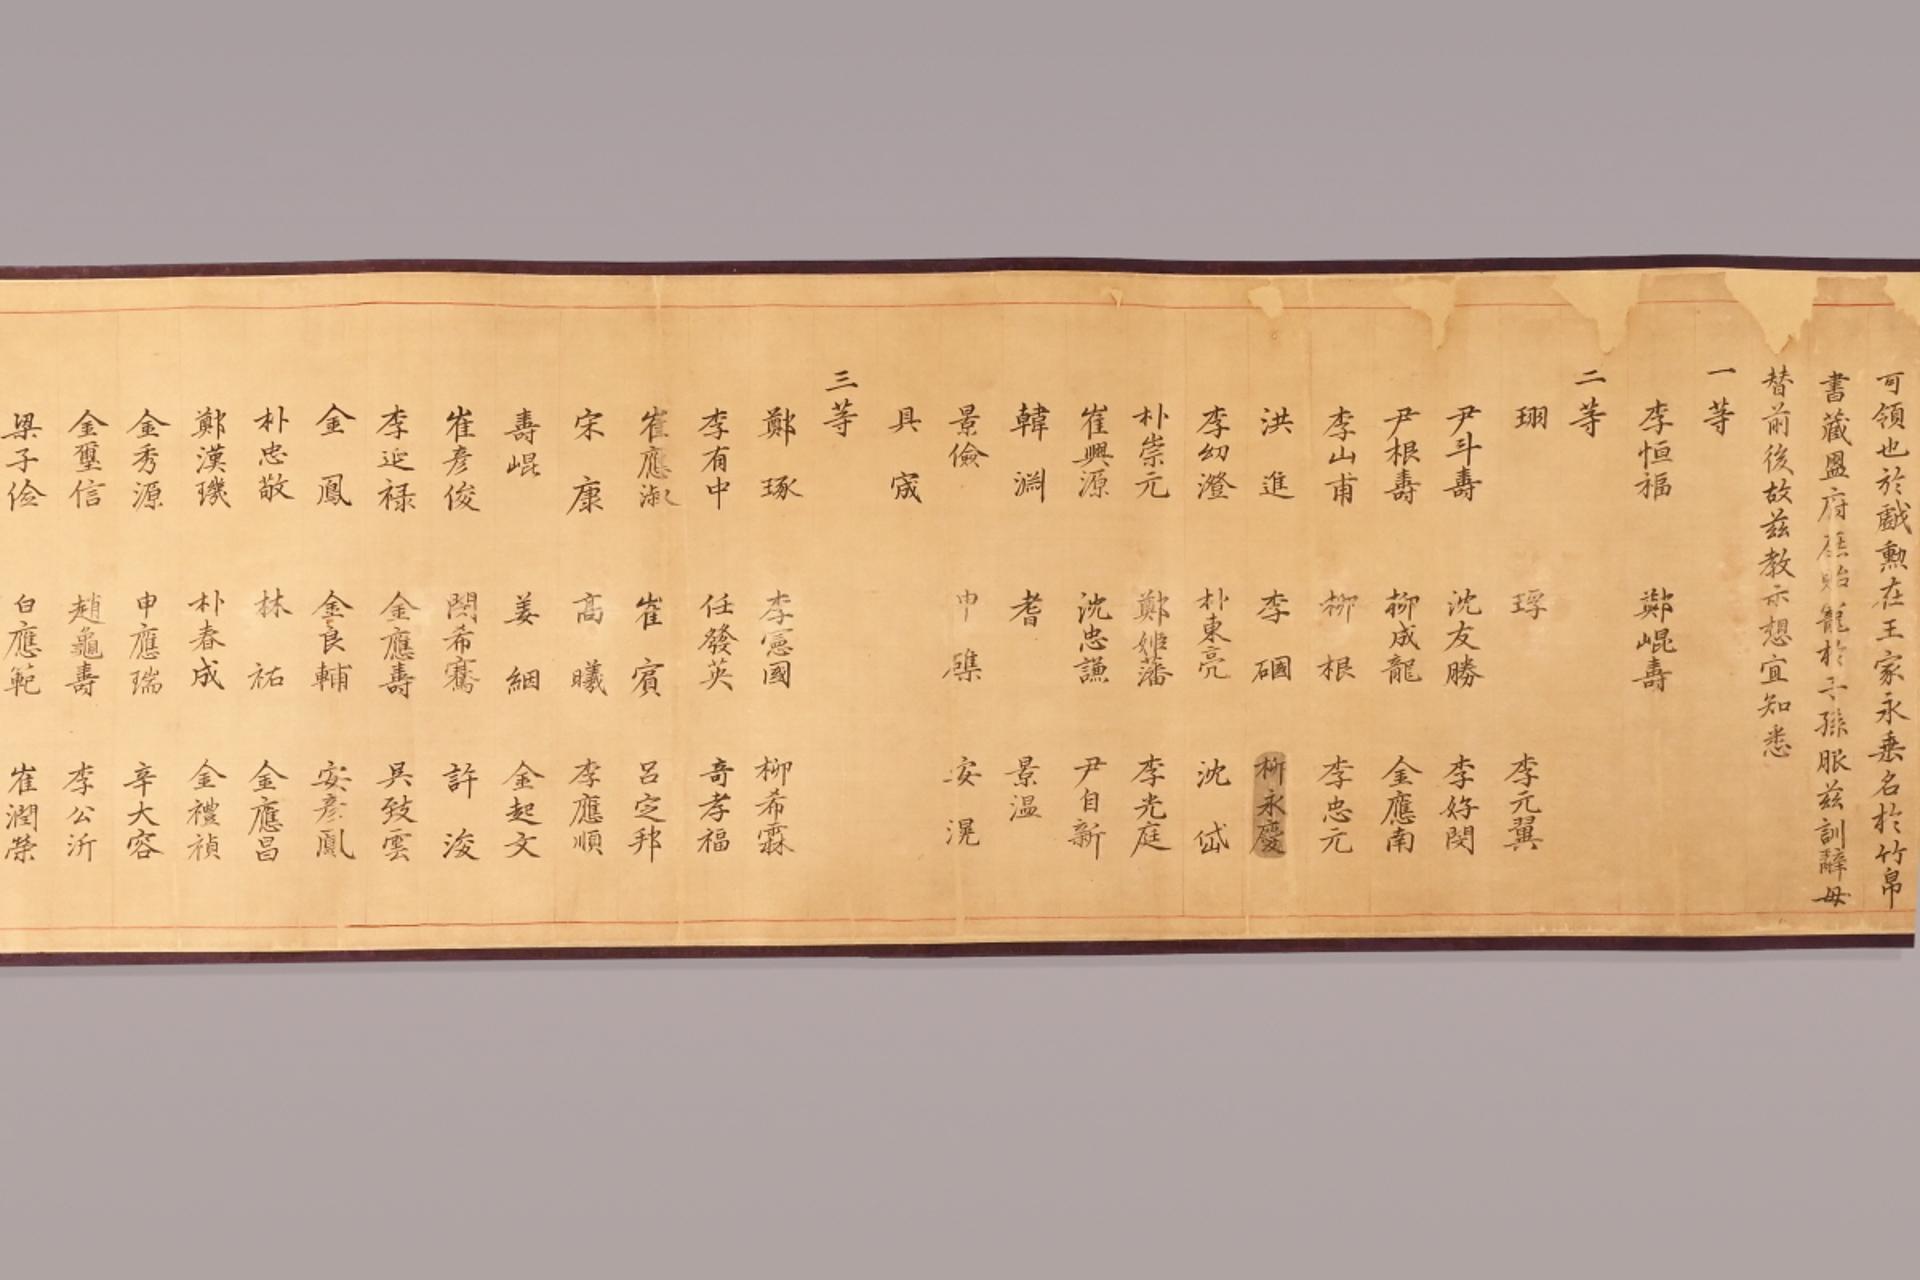 可領也於戲勳在王家永垂名於竹帛
書藏盟府 貽寵於子孫服玆訓辭毋
替前後故玆教示想宜知悉
一等
李恒福 鄭崐壽
二等
珝 琈 李元翼
尹斗壽 沈友勝 李好閔
尹根壽 柳成龍 金應南
李山甫 柳根 李忠元
洪進 李𥕏 柳永慶
李幼澄 朴東亮 沈岱
朴崇元 鄭姬藩 李光庭
崔興源 沈忠謙 尹自新
韓淵 耆 景溫
景儉 申磼 安滉
具宬
三等
鄭琢 李憲國 柳希霖
李有中 任發英 奇孝福
崔應淑 崔賓 呂定邦
宋康 高曦 李應順
壽崐 姜絪 金起文
崔彦俊 閔希騫 許浚
李延祿 金應壽 吳致雲
金鳳 金良輔 安彦鳳
朴忠敬 林祐 金應昌
鄭漢璣 朴春成 金禮禎
金秀源 申應瑞 辛大容
金璽信 趙龜壽 李公沂
梁子儉 白應範 崔潤榮